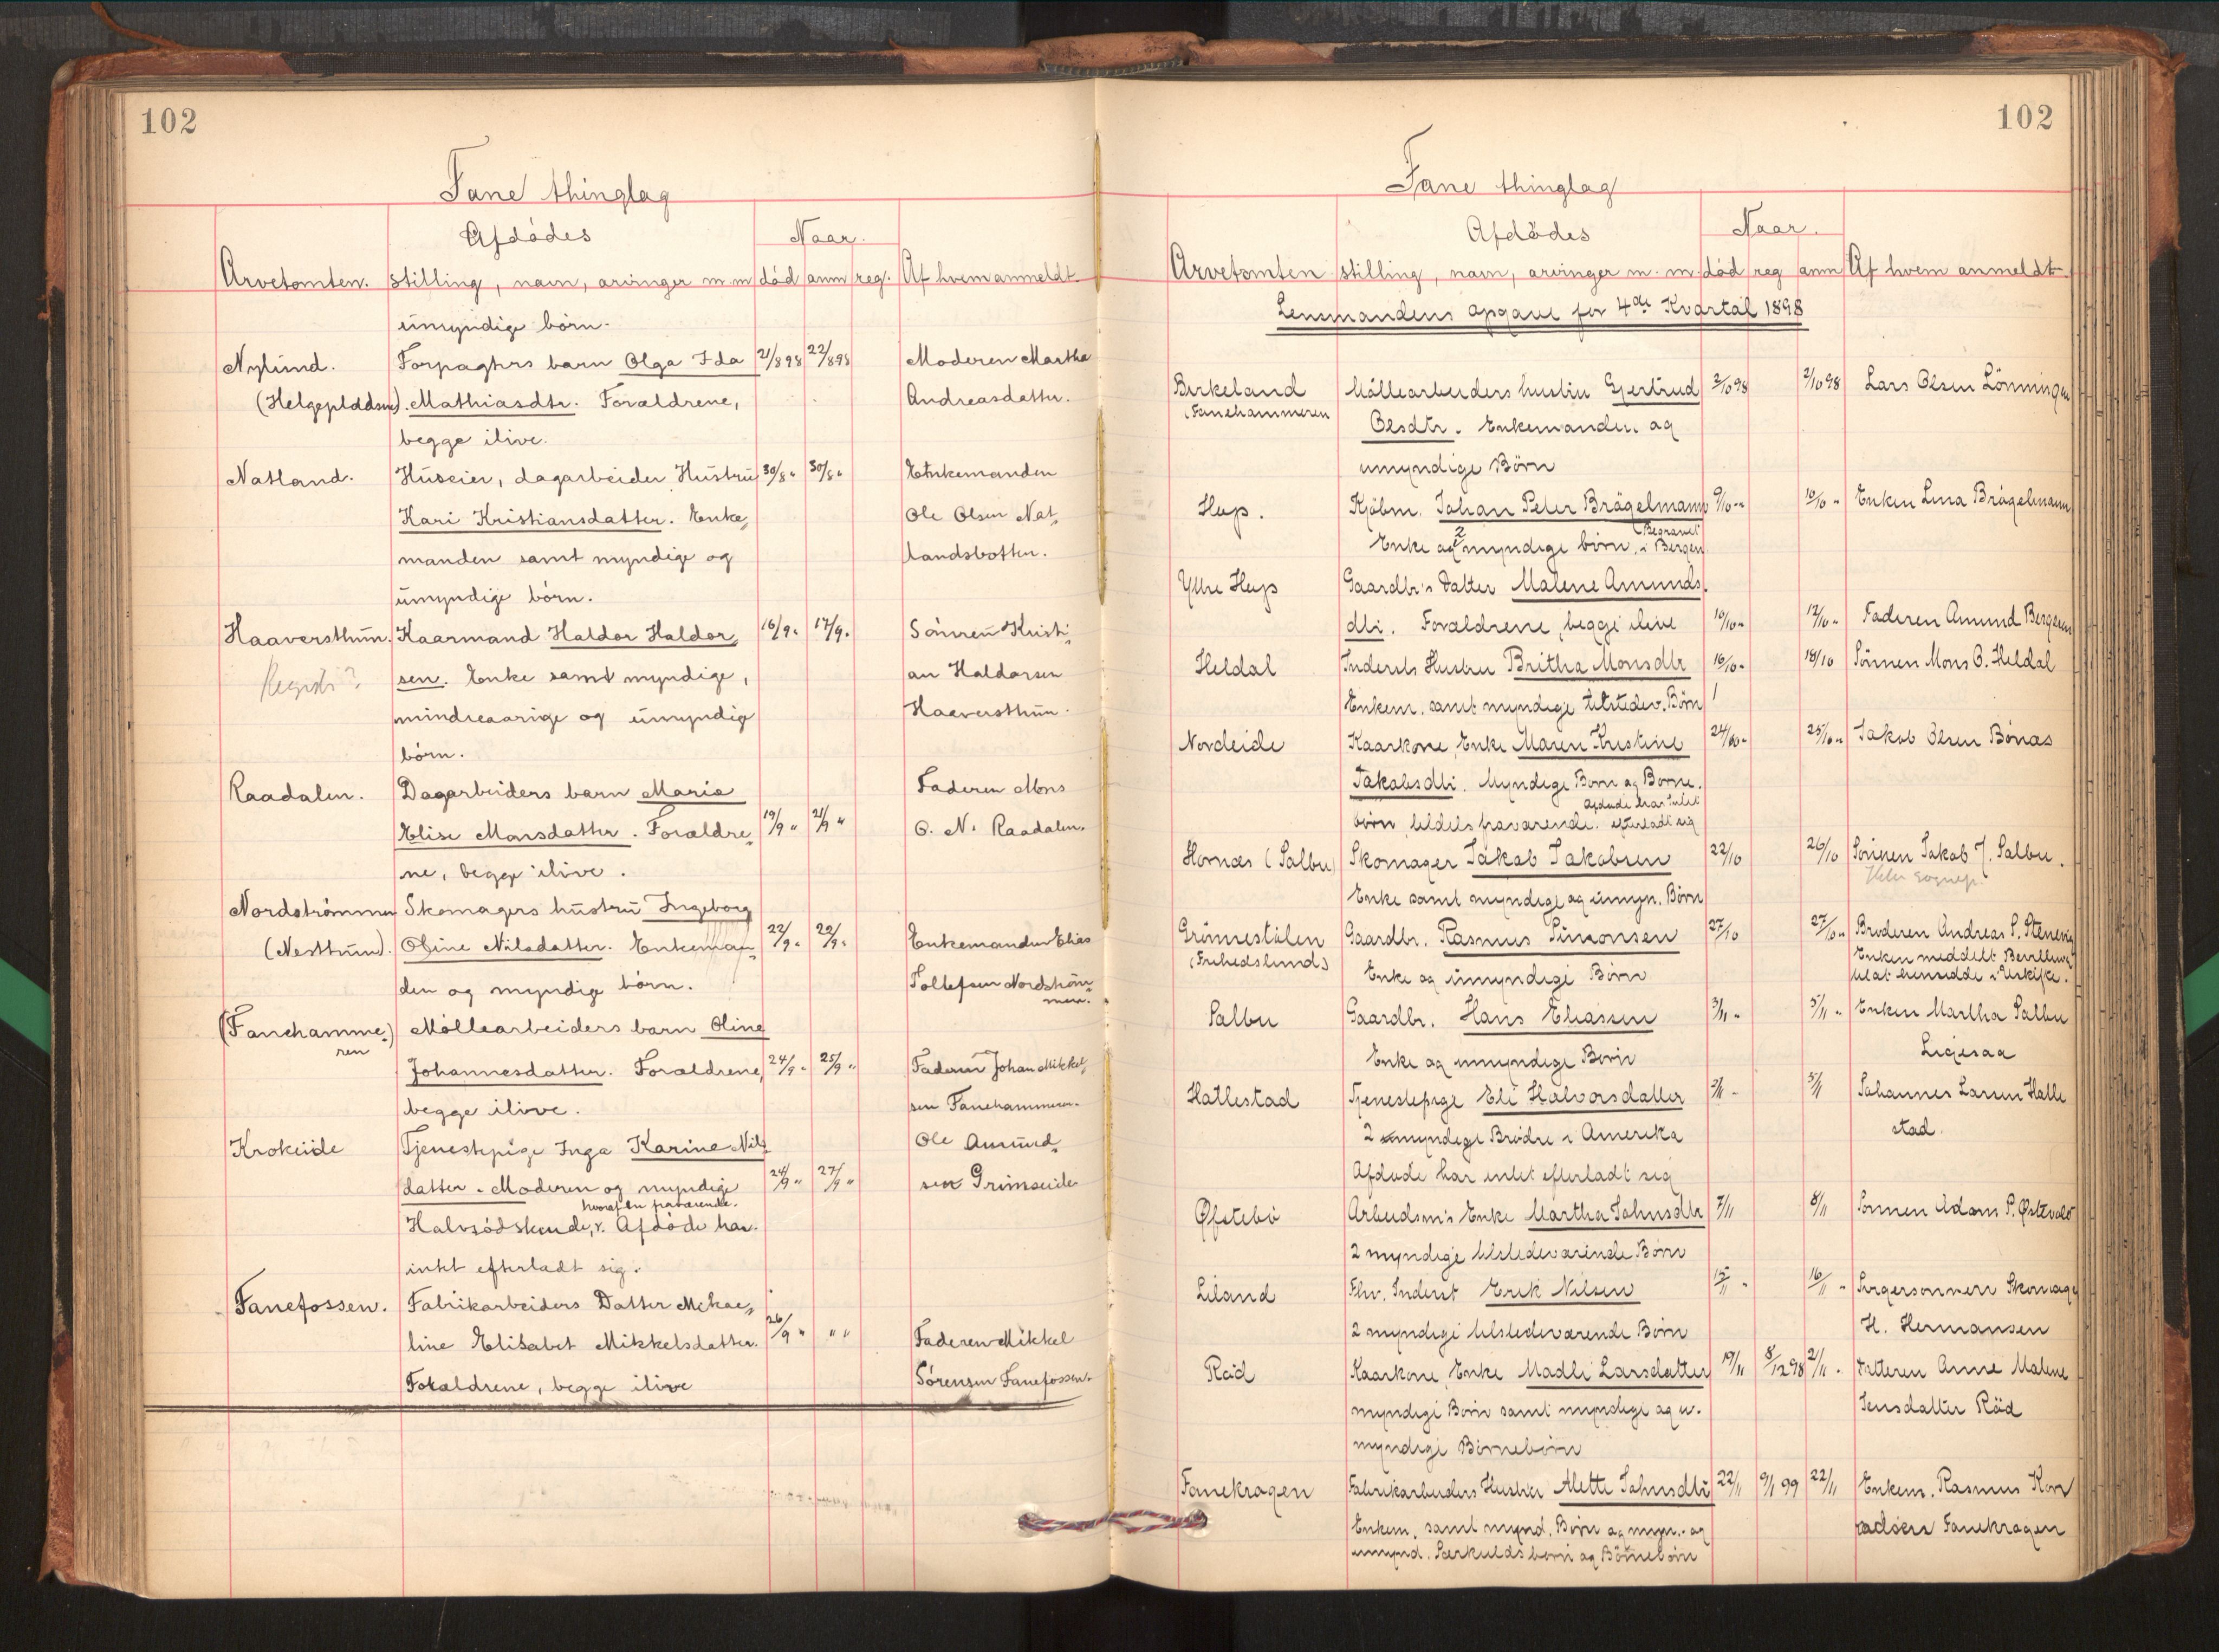 102
Fane thinglag
Afdödes
Naar.
Arvetomten. stilling, navn, arvinger m m död anm reg. Af hvem anmeldt
umyndige börn.
Nylund. Forpagters barn Olga Ida 21/8 98 22/8 98 Moderen Martha
(Helgepladsen). Mathiasdtr. Forældrene, Andreasdatter.
begge ilive.
Natland. Huseier, dagarbeider Hustru 30/8 " 30/8 " Enkemanden
Kari Kristiansdatter. Enke„ Ole Olsen Nat„
manden samt myndige og landsbotten.
umyndige börn.
Haaversthun. Kaarmand Haldor Haldor„ 16/9 " 17/9 " Sönnen Kristi„
Registr? sen. Enke samt myndige, an Haldorsen
mindreaarige og umyndig Haaversthun.
börn.
Raadalen. Dagarbeiders barn Maria Faderen Mons
Elise Monsdatter. Forældre„ 19/9 " 21/9 " O. N. Raadalen.
ne, begge ilive.
Nordströmmen Skomagers hustru Ingeborg
(Nesttun). Oline Nilsdatter. Enkeman„ 22/9 " 22/9 " Enkemanden Elias
den og myndig börn. Tollefsen Nordström„
men.
(Fanehamme„) Möllearbeiders barn Oline
ren
Johannesdatter. Forældrene, 24/9 " 25/9 " Faderen Johan Mikkel„
begge ilive. sen Fanehammeren.
Krokeide Tjenestepige Inga Karine Nils Ole Amund„
datter. Moderen og myndige 24/9 " 27/9 " sen Grimseide
hvoraf en fraværende.
Halvsödskende, v. Afdöde har
intet efterladt sig.
Fanefossen. Fabrikarbeiders Datter Mikae„
line Elisabet Mikkelsdatter. 26/9 " " " Faderen Mikkel
Forældrene, begge ilive Sörensen Fanefossen.
102
Fane thinglag
Afdödes
Naar.
Arvetomten stilling, navn, arvinger m. m. död reg anm Af hvem anmeldt
Lensmandens opgave for 4de Kvartal 1898
Birkeland Möllearbeiders hustru Gjertrud 2/10 98 2/10 98 Lars Olsen Lönningen
(Fanehammeren Olsdtr. Enkemanden og
umyndige Börn
Hop. Kjöbm. Johan Peter Brägelmann 9/10 " 10/10 " Enken Lina Brägelmann
Enke og 2 myndige börn. Begravet i Bergen
Ytre Hop Gaardbr's datter Malene Amunds„
dtr. Forældrene, begge ilive 10/10 " 12/10 " Faderen Amund Bergsen
Heldal Indersts Hustru Britha Monsdtr 16/10 " 18/10 Sönnen Mons O. Heldal
Enkem. samt myndige tilstedev. Börn
Nordeide Kaarkone, Enke Maren Kristine 24/10 " 25/10 " Jakob Olsen Bönæs
Jakobsdtr. Myndige Börn og Börne„
afdöde har intet
börn, tildels fraværende. efterladt sig
Hornæs (Salbu) Skomager Jakob Jakobsen 22/10 26/10 Sönnen Jakob J. Salbu.
Enke samt myndige og umyn. Börn
Grönnestölen Gaardbr. Rasmus Simonsen 27/10 27/10 " Broderen Andreas S. Stenevig
(Frihedslund) Enke og umyndige Börn Enken meddelt Bevilling
til at hensidde i uskifte.
Salbu Gaardbr. Hans Eliassen 3/11 " 5/11 " Enken Martha Salbu
Enke og umyndige Börn Ligesaa
Hatlestad Tjenestepige Eli Halvorsdatter 3/11 " 5/11 Johannes Larsen Hatle
2 myndige Brödre i Amerika stad.
Afdöde har intet efterladt sig
Øfstebö Arbeidsm's Enke Martha Johnsdtr 7/11 8/11 Sönnen Adam P. Østevold
2 myndige tilstedeværende Börn
Liland Fhv. Inderst Erik Nilsen 15/11 " 16/11 " Svigersönnen Skomager
2 myndige tilstedeværende Börn H. Hermansen
Råd Kaarkone, Enke Madli Larsdatter 19/11 8/12 98 21/11 " Datteren Anne Malene
myndige Börn samt myndige og u- Jensdatter Råd
myndige Börnebörn
Fanekragen Fabrikarbeiders Hustru Alette Johnsdtr 22/11 9/1 99 22/11 Enkem. Rasmus Kon
Enkem. samt mynd. Börn og myn. og radsen Fanekragen
umynd. Særkuldsbörn og Börnebörn